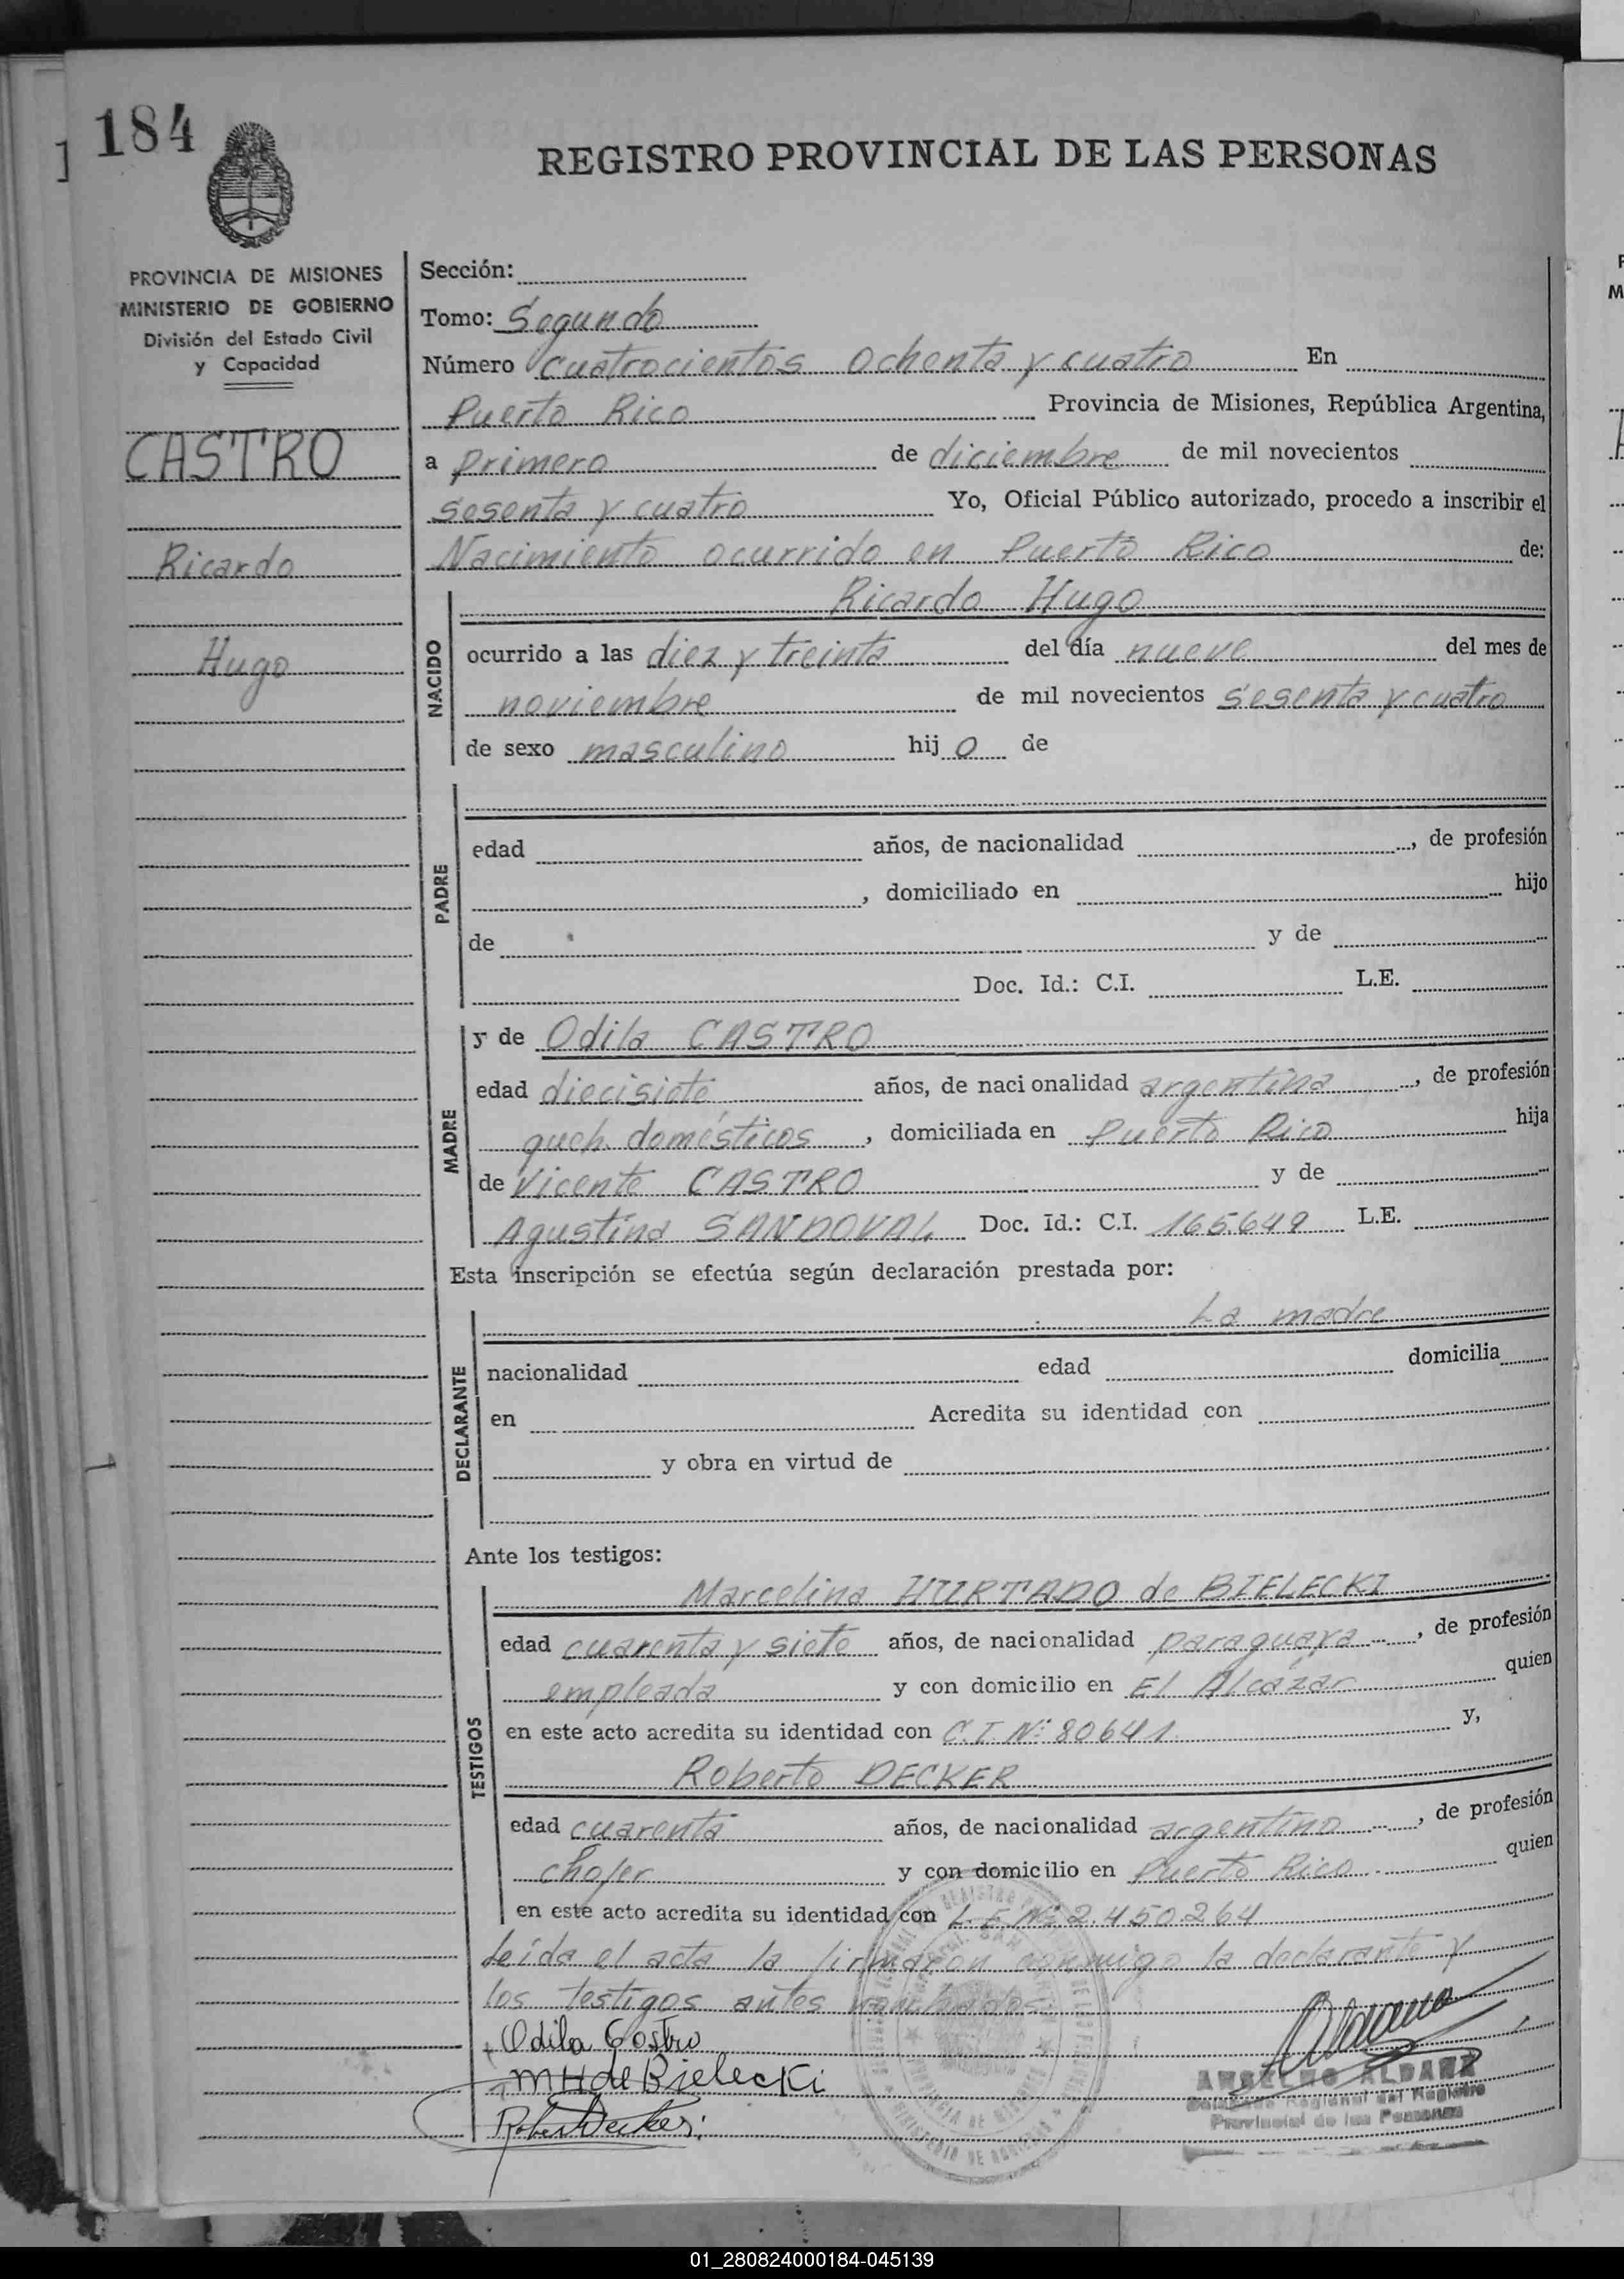 184
REGISTRO PROVINCIAL DE LAS PERSONAS
PROVINCIA DE MISIONES
MINISTERIO DE GOBIERNO
División del Estado Civil
y Capacidad
CASTRO
Ricardo
Hugo
Sección:
Tomo: Segundo
Número Cuatrocientos ochenta y cuatro En
Puerto Rico Provincia de Misiones, República Argentina,
a primero de diciembre de mil novecientos
sesenta y cuatro Yo, Oficial Público autorizado, procedo a inscribir el
Nacimiento ocurrido en Puerto Rico de:
NACIDO
Ricardo Hugo
ocurrido a las diez y treinta del día nueve del mes de
noviembre de mil novecientos sesenta y cuatro
de sexo masculino hij o de
PADRE
edad años, de nacionalidad , de profesión
, domiciliado en hijo
de y de
Doc. Id.: C.I. L.E.
MADRE
y de Odila CASTRO
edad diecisiete años, de nacionalidad argentina , de profesión
queh. domésticos , domiciliada en Puerto Rico hija
de Vicente CASTRO y de
Agustina SANDOVAL Doc. Id.: C.I. 165.649 L.E.
Esta inscripción se efectúa según declaración prestada por:
DECLARANTE
La madre
nacionalidad edad domicilia
en Acredita su identidad con
y obra en virtud de
Ante los testigos:
TESTIGOS
Marcelina HURTADO de BIELECKI
edad cuarenta y siete años, de nacionalidad paraguaya , de profesión
empleada y con domicilio en El Alcázar quien
en este acto acredita su identidad con C.I. Nº 80641 y,
Roberto DECKER
edad cuarenta años, de nacionalidad argentino , de profesión
chofer y con domicilio en Puerto Rico quien
en este acto acredita su identidad con L.E. Nº 2.450.264
Leída el acta la firmaron conmigo la declarante y
los testigos antes nombrados.
Odila Castro
MH de Bielecki
Robert Decker
ANSELMO ALDANA
Regional del Registro
Provincial de las Personas
01_280824000184-045139